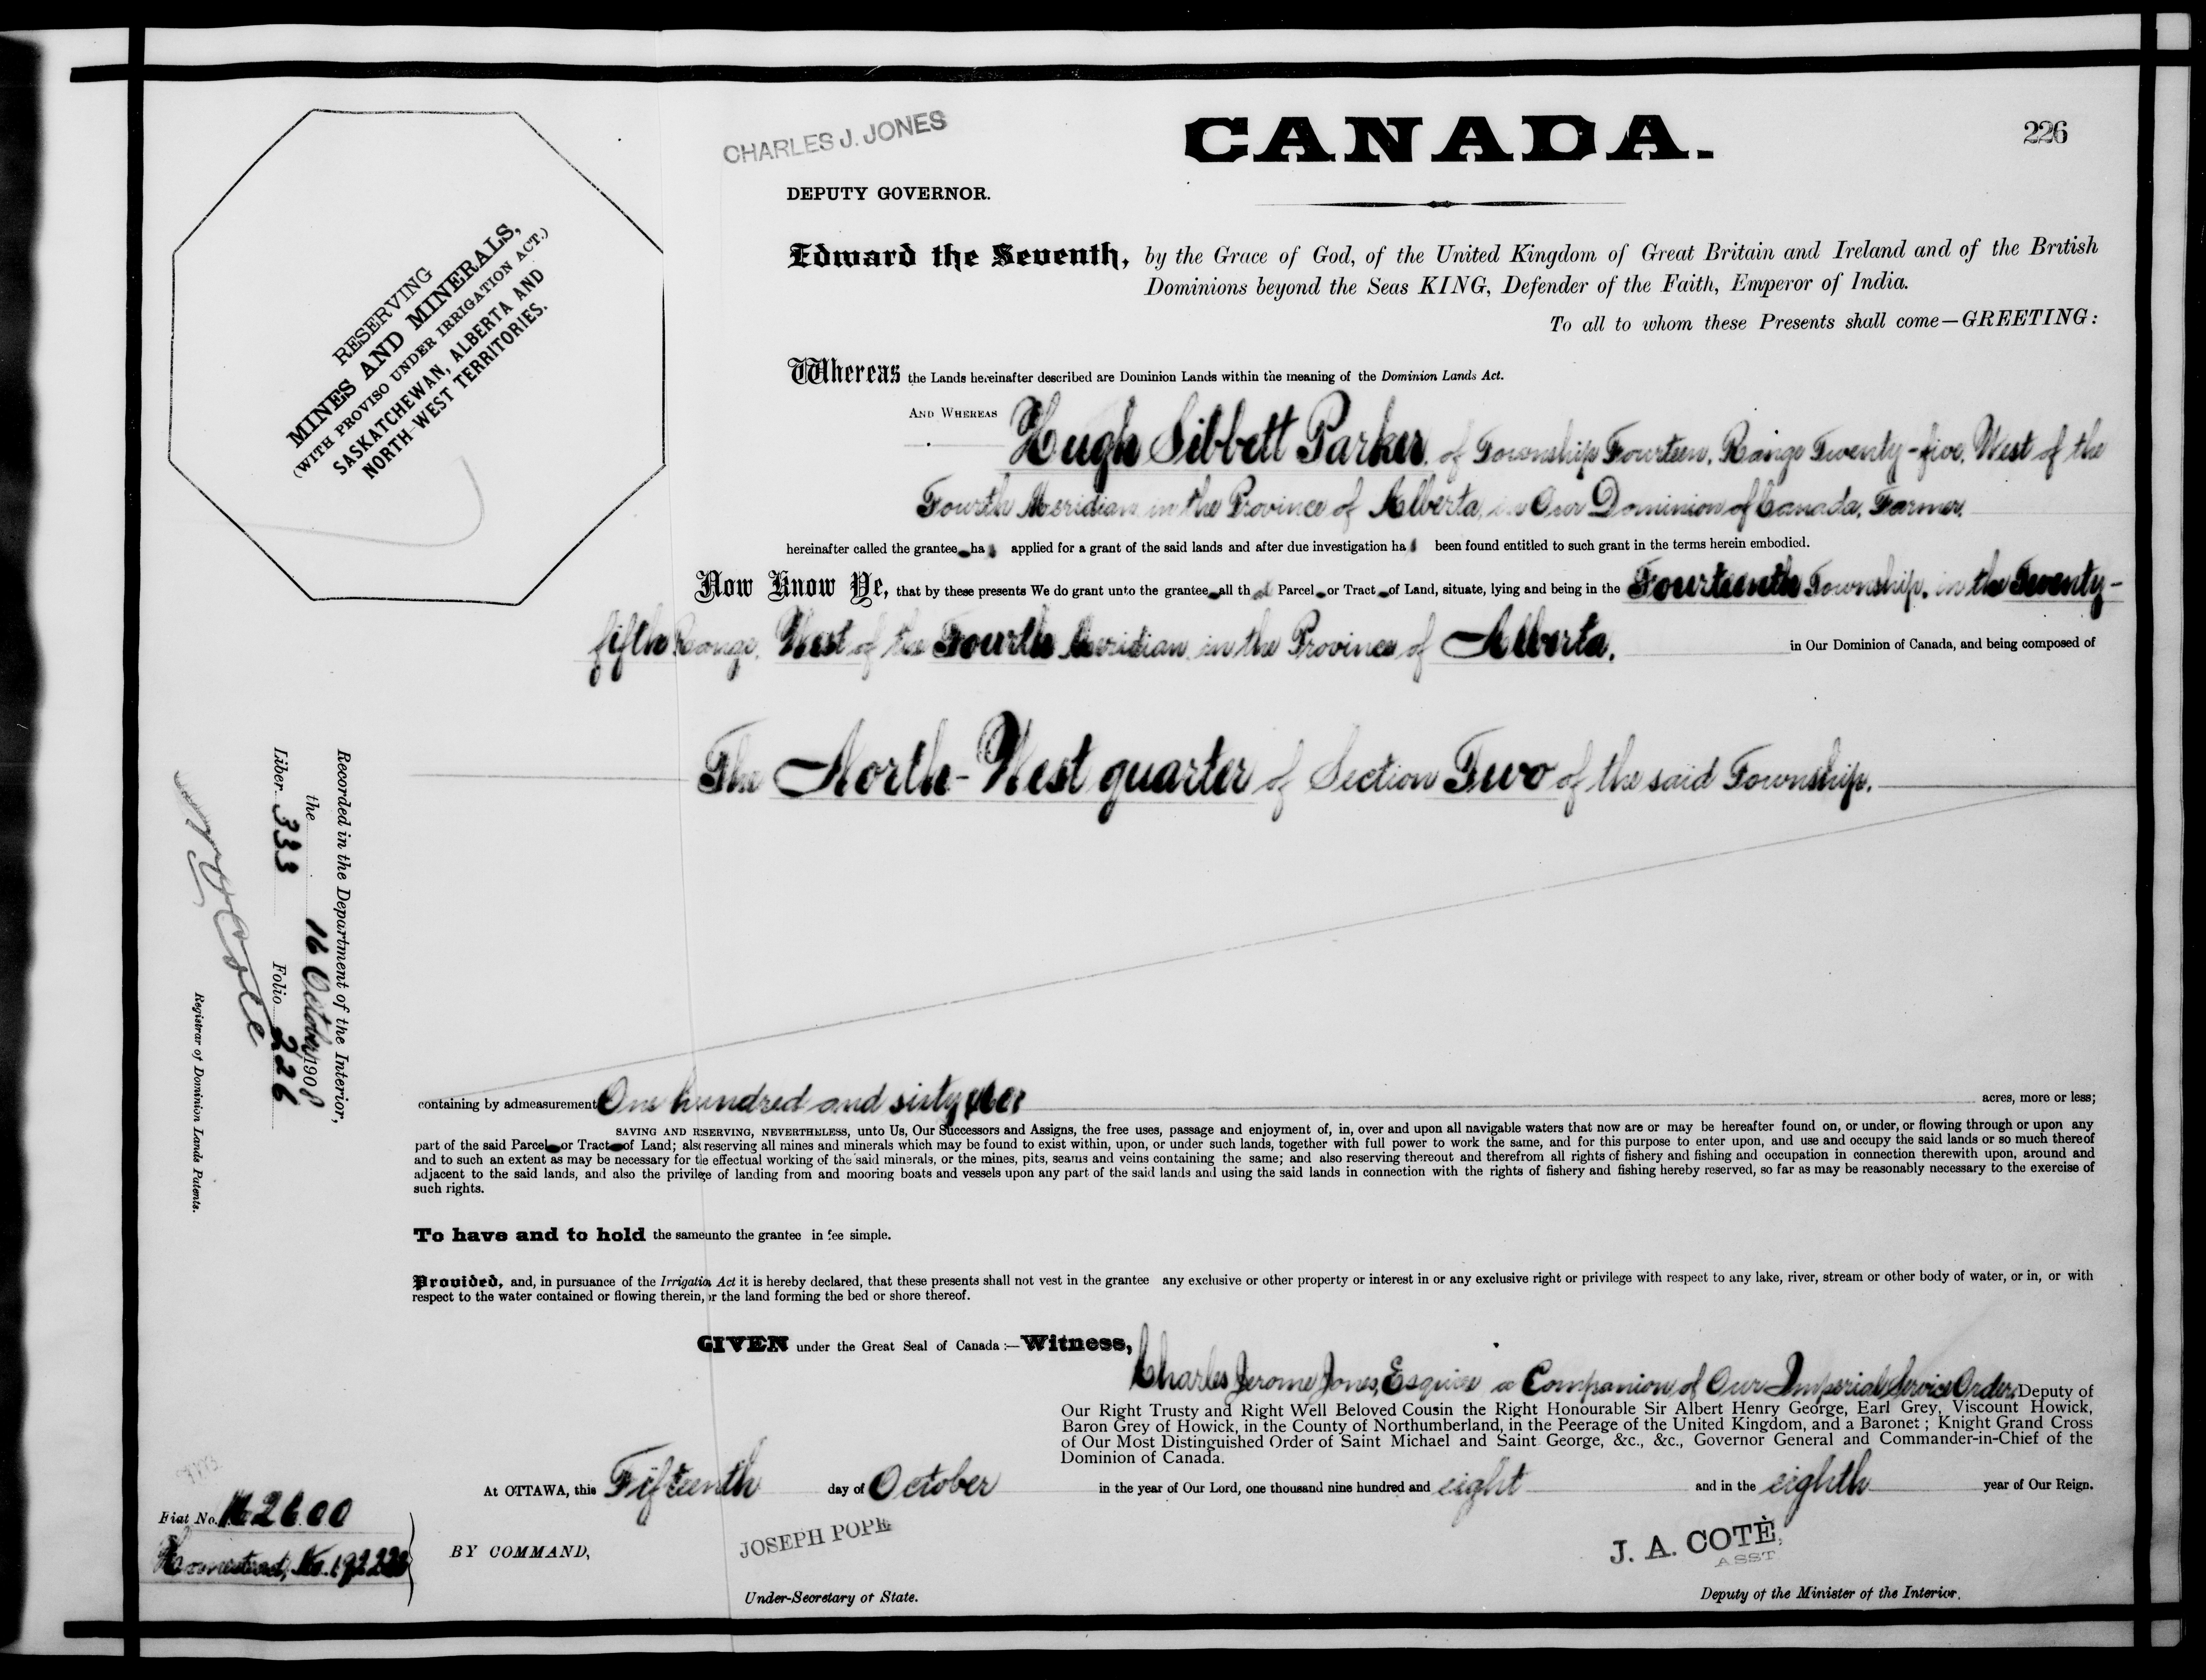 CHARLES J. JONES
CANADA.
226
DEPUTY GOVERNOR.
RESERVING
MINES AND MINERALS,
(WITH PROVISO UNDER IRRIGATION ACT.)
SASKATCHEWAN, ALBERTA AND
NORTH-WEST TERRITORIES.
Edward the Seventh, by the Grace of God, of the United Kingdom of Great Britain and Ireland and of the British
Dominions beyond the Seas KING, Defender of the Faith, Emperor of India.
To all to whom these Presents shall come—GREETING:
Whereas the Lands hereinafter described are Dominion Lands within the meaning of the Dominion Lands Act.
AND WHEREAS Hugh Sibbett Parker, of Township Fourteen, Range Twenty-five, West of the
Fourth Meridian in the Province of Alberta, in Our Dominion of Canada, Farmer,
hereinafter called the grantee has applied for a grant of the said lands and after due investigation has been found entitled to such grant in the terms herein embodied.
Now Know Ye, that by these presents We do grant unto the grantee all that Parcel or Tract of Land, situate, lying and being in the Fourteenth Township, in the Twenty-
fifth Range, West of the Fourth Meridian in the Province of Alberta, in Our Dominion of Canada, and being composed of
The North-West quarter of Section Two of the said Township.
Recorded in the Department of the Interior,
the 16 October 1908
Liber 333 Folio 226
Registrar of Dominion Lands Patents.
containing by admeasurement One hundred and sixty acres, more or less;
SAVING AND RESERVING, NEVERTHELESS, unto Us, Our Successors and Assigns, the free uses, passage and enjoyment of, in, over and upon all navigable waters that now are or may be hereafter found on, or under, or flowing through or upon any
part of the said Parcel or Tract of Land; also reserving all mines and minerals which may be found to exist within, upon, or under such lands, together with full power to work the same, and for this purpose to enter upon, and use and occupy the said lands or so much thereof
and to such an extent as may be necessary for the effectual working of the said minerals, or the mines, pits, seams and veins containing the same; and also reserving thereout and therefrom all rights of fishery and fishing and occupation in connection therewith upon, around and
adjacent to the said lands, and also the privilege of landing from and mooring boats and vessels upon any part of the said lands and using the said lands in connection with the rights of fishery and fishing hereby reserved, so far as may be reasonably necessary to the exercise of
such rights.
To have and to hold the same unto the grantee in fee simple.
Provided, and, in pursuance of the Irrigation Act it is hereby declared, that these presents shall not vest in the grantee any exclusive or other property or interest in or any exclusive right or privilege with respect to any lake, river, stream or other body of water, or in, or with
respect to the water contained or flowing therein, or the land forming the bed or shore thereof.
GIVEN under the Great Seal of Canada :— Witness,
Charles Jerome Jones, Esquire a Companion of Our Imperial Service Order, Deputy of
Our Right Trusty and Right Well Beloved Cousin the Right Honourable Sir Albert Henry George, Earl Grey, Viscount Howick,
Baron Grey of Howick, in the County of Northumberland, in the Peerage of the United Kingdom, and a Baronet ; Knight Grand Cross
of Our Most Distinguished Order of Saint Michael and Saint George, &c., &c., Governor General and Commander-in-Chief of the
Dominion of Canada.
At OTTAWA, this Fifteenth day of October in the year of Our Lord, one thousand nine hundred and eight and in the eighth year of Our Reign.
Fiat No.
Homestead, No.
BY COMMAND,
JOSEPH POPE
Under-Secretary of State.
J. A. COTÈ,
ASST
Deputy of the Minister of the Interior.